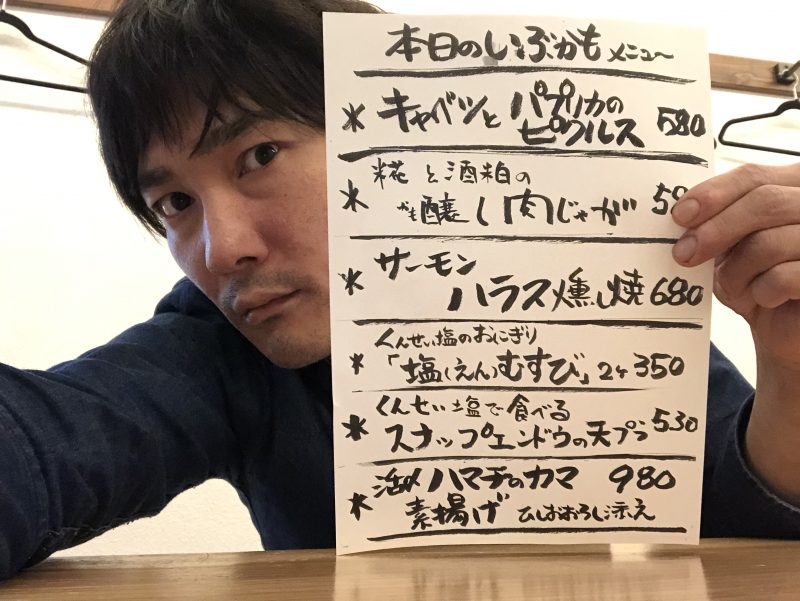 本日のいぶかも メニュー
* キャベツと パプリカの
ピクルス 580
* 糀と酒粕の
かも醸し肉じゃが 58
* サーモン
ハラス燻し焼 680
* くんせい塩のおにぎり
「塩(えん)むすび」2ケ 350
* くんせい塩で食べる
スナップエンドウの天プラ 530
* 活〆ハマチのカマ 980
素揚げ ひしおおろし添え